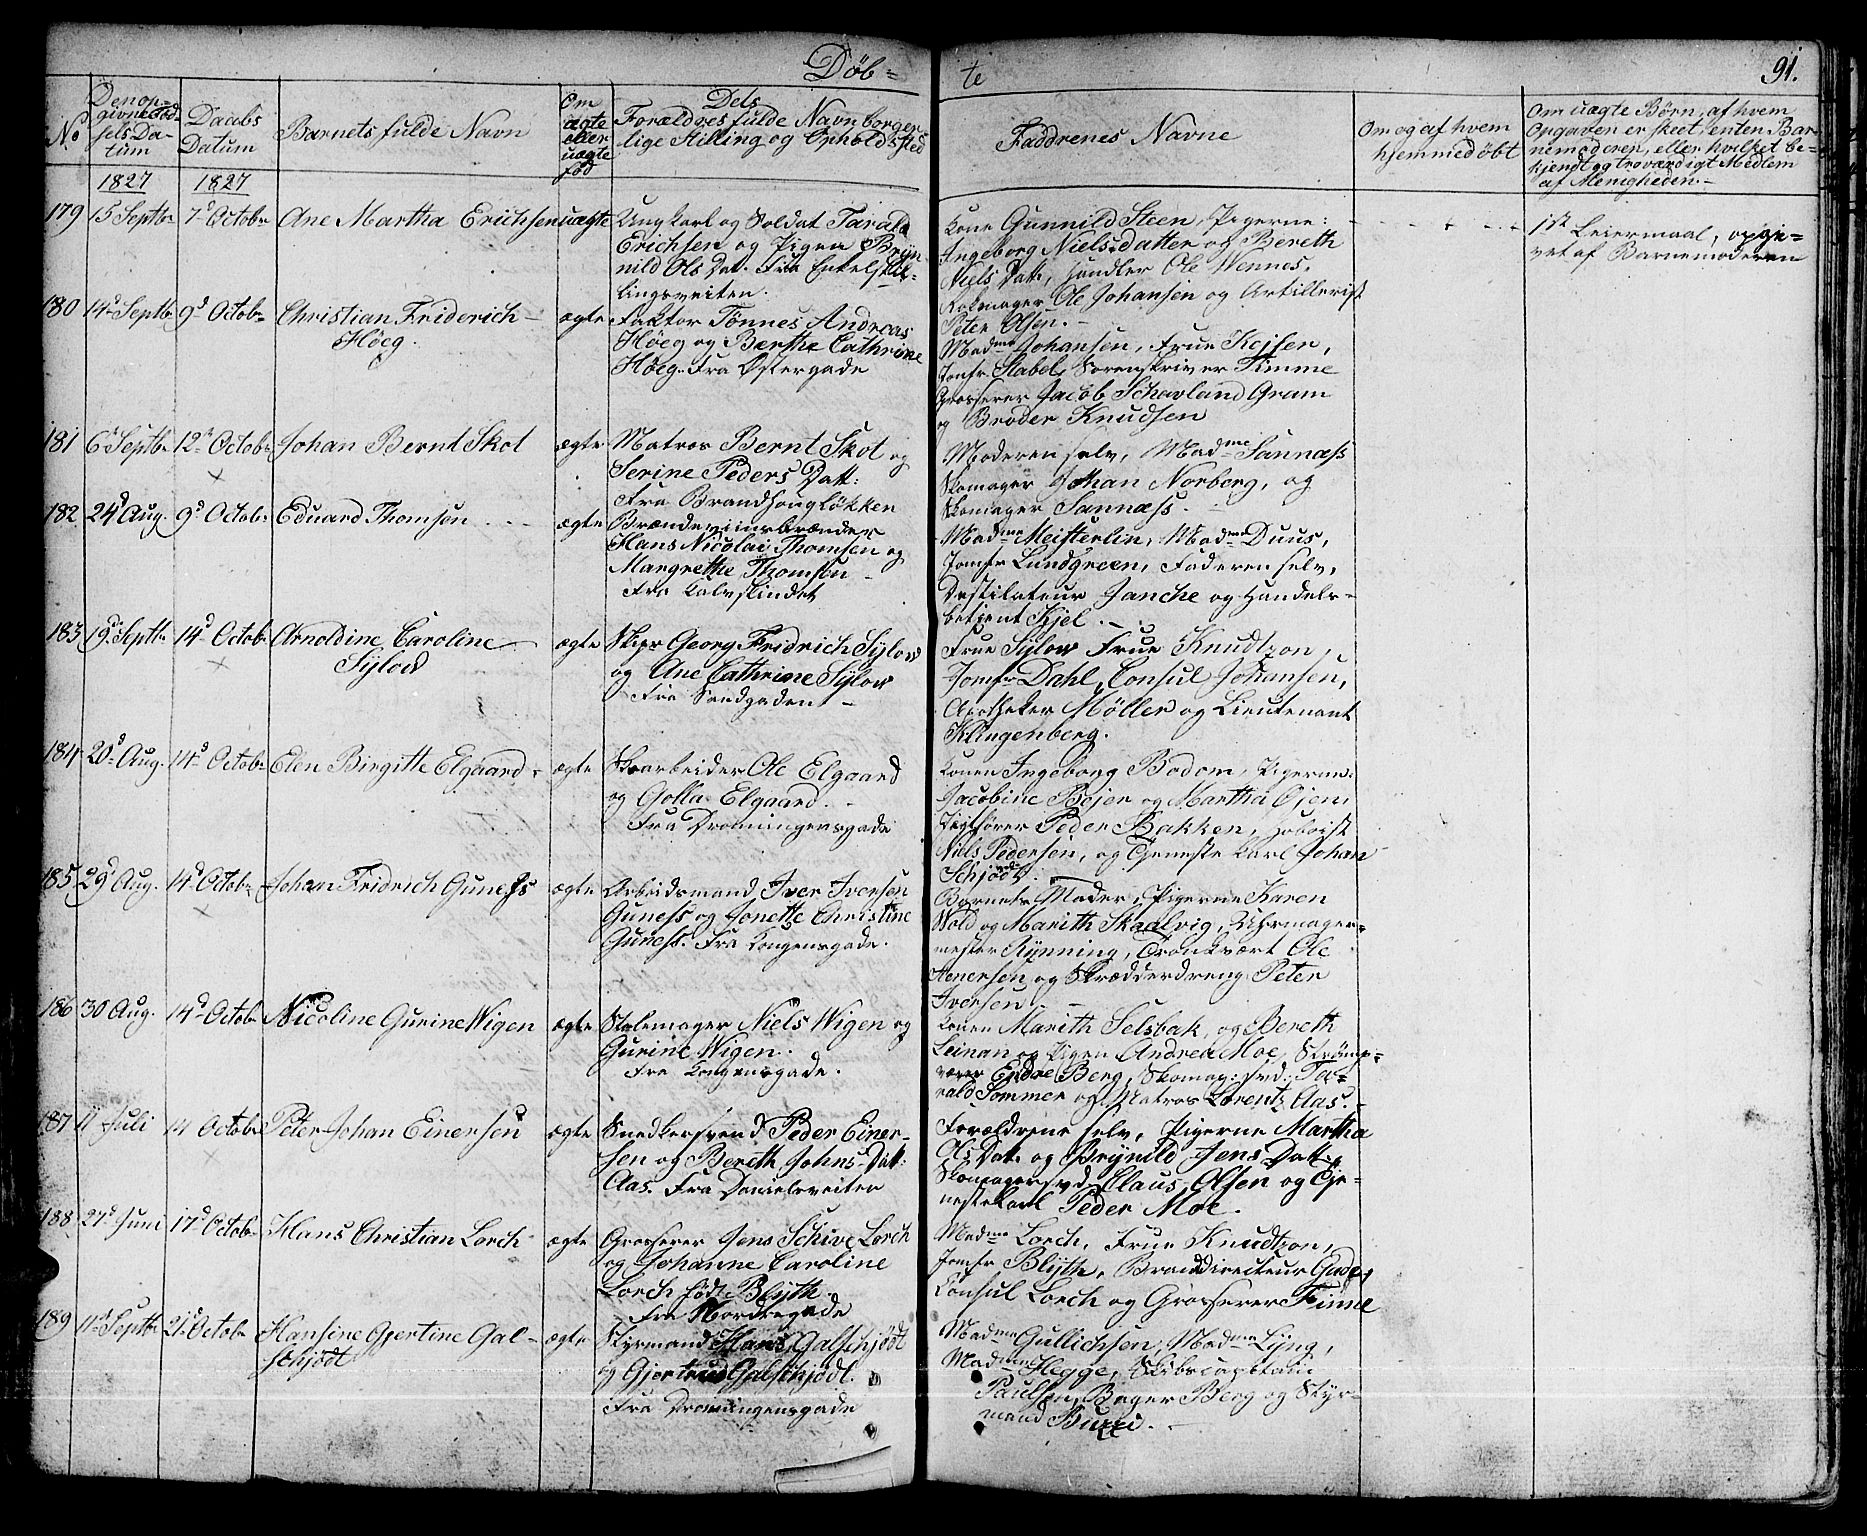 Døb=
te
91.
No
Den op=
givne Fød=
sels Da=
tum
Daabs
Datum
Barnets fulde Navn
Om
ægte
eller
uægte
fød
Dets
Forældres fulde Navn borger
lige Stilling og Opholdssted
Faddrenes Navne
Om og af hvem
hjemmedøbt
Om uægte Børn, af hvem
Opgaven er skeet, enten Bar=
nemoderen, eller hvilket be=
kjendt og troværdigt Medlem
af Menigheden.-
1827
1827
179 15 Septbr 7d Octobr Ane Martha Erichsen uægte
Ungkarl og Soldat Tarald
Erichsen og Pigen Bryn-
nild Ols Dat. Fra Enkelskil-
lingsveiten.
Kone Gunnild Steen, Pigerne:
Ingeborg Nielsdatter og Bereth
Niels Dat., Handler Ole Wennes,
Kokmager Ole Johansen og Artillerist
Peter Olsen.-
1st Leiermaal, opgi=
vet af Barnemoderen
180 14d Septbr 9d Octobr Christian Friderich
Høeg.
ægte
Faktor Tønnes Andreas
Høeg og Berthe Cathrine
Høeg. Fra Østergade
Madme Johansen, Frue Kejser,
Jomfr Stabel, Sorenskriver Kimme
Grosserer Jacob Schavland Gram
og Broder Knudsen
181 6d Septbr 12te Octobr Johan Bernt Skot
ægte
Matros Bernt Skot og
Serine Peders Datt:
Fra Brandhougløkken
Moderen selv, Madme Sannæss
Skomager Johan Norberg, og
Skomager Sannæss.
182 24d Aug. 9d Octobr Eduard Thomsøn
ægte
Brændeviinsbrænder
Hans Nicolai Thomsen og
Margrethe Thomsøn
Fra Kalvskindet
Madme Meisterlin, Madme Duus,
Jomfr Lundgreen, Faderen selv,
Destilateur Jancke og Handels-
betjent Kjel.
183 19de Septbr 14d Octobr Arnoldine Caroline
Sylow
ægte
Skipr Georg Fridrich Sylow
og Ane Cathrine Sylow
Fra Sandgaden
Frue Sylow Frue Knudtzon,
Jomfr Dahl, Consul Johansen,
Apotheker Møller og Lieutenant
Klingenberg.
184 20d Aug. 14d Octobr Elen Birgitte Elgaard
ægte
Skoarbeider Ole Elgaard
og Golla Elgaard.
Fra Dronningensgade
Konen Ingeborg Bodom, Pigerne
Jacobine Bejer og Martha Øjen,
Vigtfører Peder Bakken, Hoboist
Niels Pedersen, og Tjeneste Karl Johan
Schjødt.
185 29d Aug. 14d Octobr Johan Fridrich Guness
ægte
Arbeidsmand Iver Iversen
Guness og Jonette Christine
Guness. Fra Kongensgade.
Barnets Moder, Pigerne Karen
Wold og Marith Skaalvig, Uhrmager=
mester Rynning, Tronkvært Ole
Henersen og Skrædderdreng Peter
Iversen
186 30 Aug. 14d Octobr Nicoline Gurine Wigen
ægte
Stolemager Niels Wigen og
Gurine Wigen.
Fra Kongensgade.
Konen Marith Selsbak, og Bereth
Leinan og Pigen Andrea Moe, Strømp=
væver Endre Berg, Skomag: svd: Ta=
rald Sommer og Matros Lorentz Aas.
187 11 Juli 14 Octobr Peter Johan Einersen
ægte
Snedkersvend Peder Einer-
sen og Bereth Johns Dat:
Aas. Fra Danielsveiten
Forældrene selv, Pigerne Martha
Ols Dat. og Brynild Jens Dat.,
Skomagersvd. Claus Olsen og Tje=
nestekarl Peder Moe.
188 27d Juni 17d Octobr Hans Christian Lorch
ægte
Grosserer Jens Schive Lorch
og Johanne Caroline
Lorch født Blyth
Fra Nordregade
Madme Lorch, Frue Knudtzon,
Jomfr Blyth, Branddirecteur Gade,
Consul Lorch og Grosserer Finne
189 11te Septbr 21d Octobr Hansine Gjertine Gal-
schjødt
ægte
Styrmand Hans Galschjødt
og Gjertrud Galschjødt.
Fra Dronningensgade
Madme Gullichsen, Madme Lyng,
Madme Hegge, Skibscapitain
Paulsen, Bager Berg og Styr-
mand Buzzi.